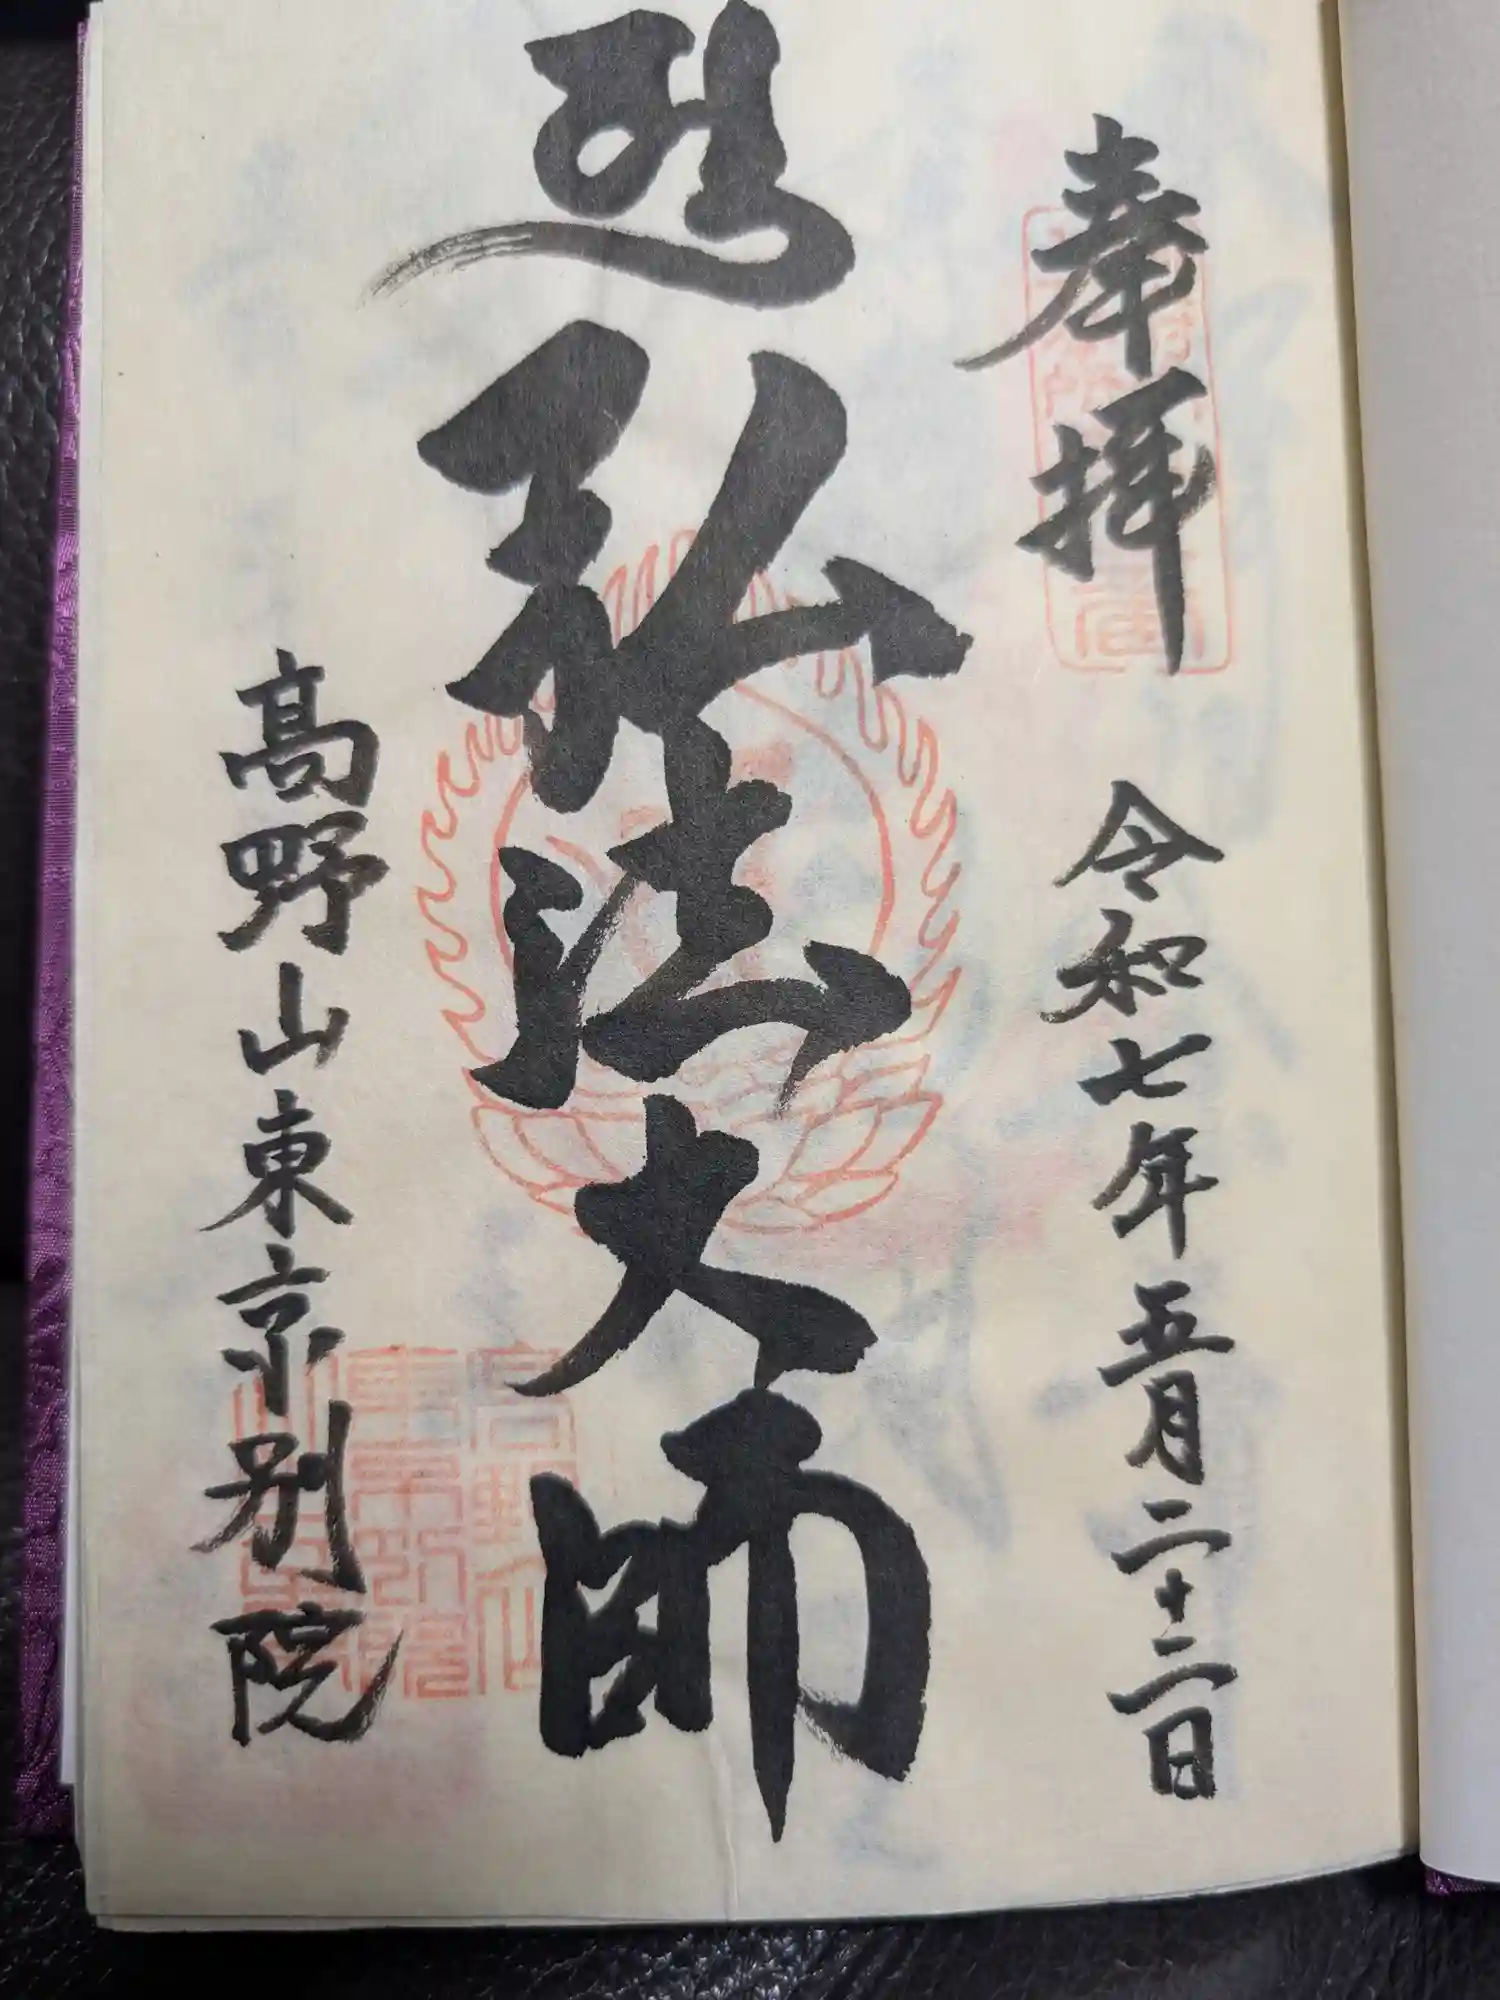 奉拝
令和七年五月二十二日
弘法大師
高野山東京別院